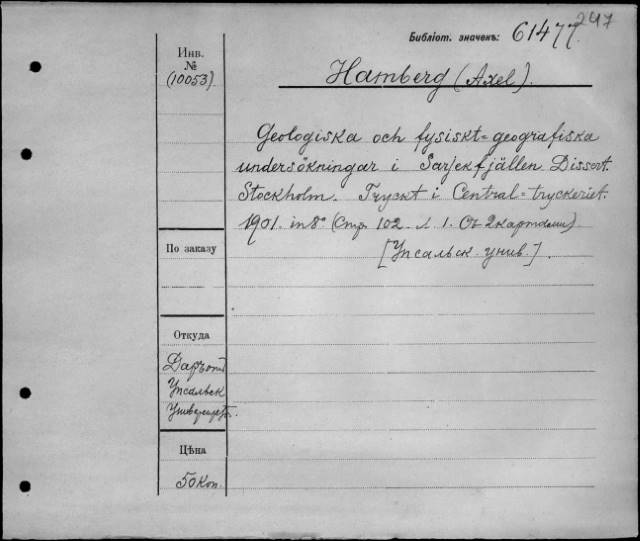 247
Библіот. значекъ: 61477
Инв.
№
(10053)
Hamberg (Axel).
Geologiska och fysiskt=geografiska
undersökningar i Sarjekfjällen. Dissert.
Stockholm. Tryckt i Central=tryckeriet.
1901. in 8° (Стр. 102. Л. 1. Съ 2 картами).
[Упсальск. унив.].
По заказу
Откуда
Даръ отъ
Упсальск
Университ.
Цѣна
50 коп.